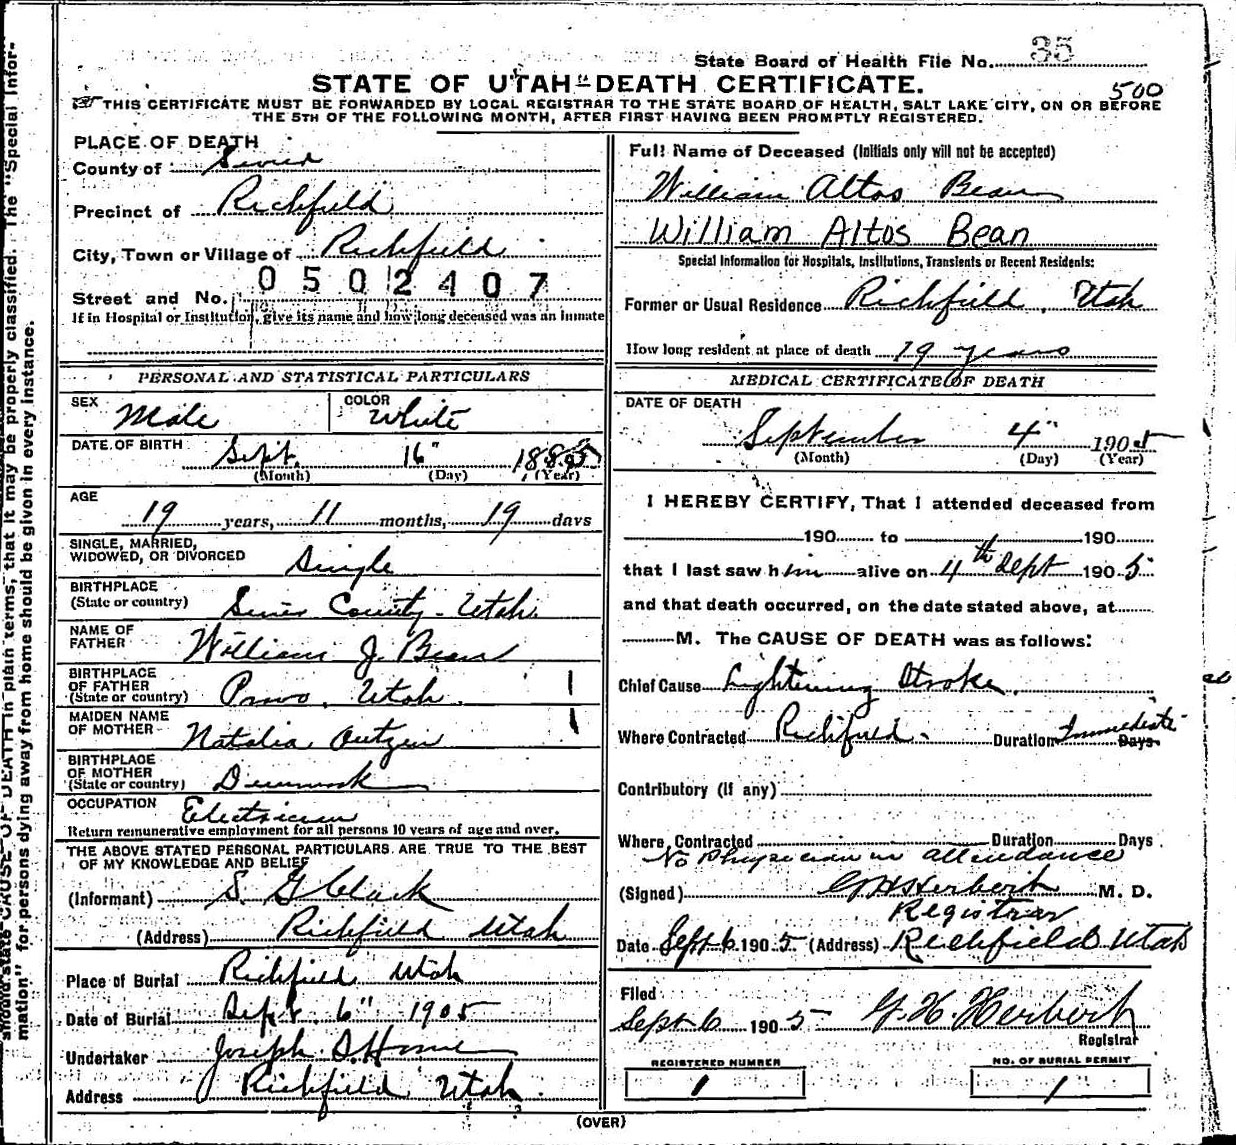 35
State Board of Health File No.
STATE OF UTAH-DEATH CERTIFICATE.
500
THIS CERTIFICATE MUST BE FORWARDED BY LOCAL REGISTRAR TO THE STATE BOARD OF HEALTH, SALT LAKE CITY, ON OR BEFORE
THE 5TH OF THE FOLLOWING MONTH, AFTER FIRST HAVING BEEN PROMPTLY REGISTERED.
should state CAUSE OF DEATH in plain terms, that it may be properly classified. The "Special Infor-
mation" for persons dying away from home should be given in every instance.
PLACE OF DEATH
County of Sevier
Precinct of Richfield
City, Town or Village of Richfield
0502407
Street and No.
If in Hospital or Institution, give its name and how long deceased was an inmate
PERSONAL AND STATISTICAL PARTICULARS
SEX Male COLOR White
DATE OF BIRTH Sept. 16" 1885
(Month) (Day) (Year)
AGE
19 years, 11 months, 19 days
SINGLE, MARRIED,
WIDOWED, OR DIVORCED Single
BIRTHPLACE
(State or country) Sevier County - Utah.
NAME OF
FATHER William J. Bean
BIRTHPLACE
OF FATHER
(State or country) Provo, Utah. 1
MAIDEN NAME
OF MOTHER Natalia Outzen 1
BIRTHPLACE
OF MOTHER
(State or country) Denmark
OCCUPATION Electrician
Return remunerative employment for all persons 10 years of age and over.
THE ABOVE STATED PERSONAL PARTICULARS ARE TRUE TO THE BEST
OF MY KNOWLEDGE AND BELIEF
(Informant) S. G. Clark
(Address) Richfield Utah
Place of Burial Richfield Utah
Date of Burial Sept. 6" 1905
Undertaker Joseph S. Horne
Address Richfield Utah
Full Name of Deceased (Initials only will not be accepted)
William Altos Bean
William Altos Bean
Special Information for Hospitals, Institutions, Transients or Recent Residents:
Former or Usual Residence Richfield, Utah
How long resident at place of death 19 years
MEDICAL CERTIFICATE OF DEATH
DATE OF DEATH
September 4" 1905
(Month) (Day) (Year)
I HEREBY CERTIFY, That I attended deceased from
190 to 190
that I last saw him alive on 4th Sept 1905
and that death occurred, on the date stated above, at
M. The CAUSE OF DEATH was as follows:
Chief Cause Lightning Stroke.
Where Contracted Richfield. Duration Immediate Days
Contributory (if any)
Where Contracted Duration Days
No Physician in attendance
(Signed) G H Herbert M. D.
Registrar
Date Sept 6 1905 (Address) Richfield Utah
Filed
Sept 6 1905 G. H. Herbert
Registrar
REGISTERED NUMBER
1
NO. OF BURIAL PERMIT
1
(OVER)